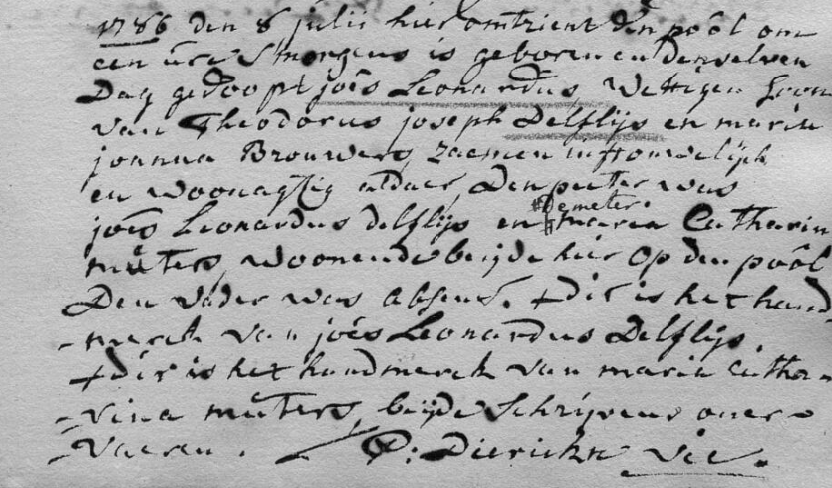 1786 den 8 julii hier omtrient den pôôl om
een üre Smorgens is geboren en denselven
Dag gedoopt joês Leonardus Wettigen Soon
van Theodorus joseph Delflijs en maria
joanna Brouwers, zaemen in houwelijck
en woonagtig aldaer, Den peeter was
joês Leonardus delflijs en Demeter maria Catharin
müters, woonende beijde hier op den pôôl
Den vader was absent. + dit is het hand
-merck van joês Leonardus Delflijs.
+ dit is het handmerck van maria Catha-
-rina müters, beijde Schrijvens oner-
-vaeren. P: Dierickx vic.